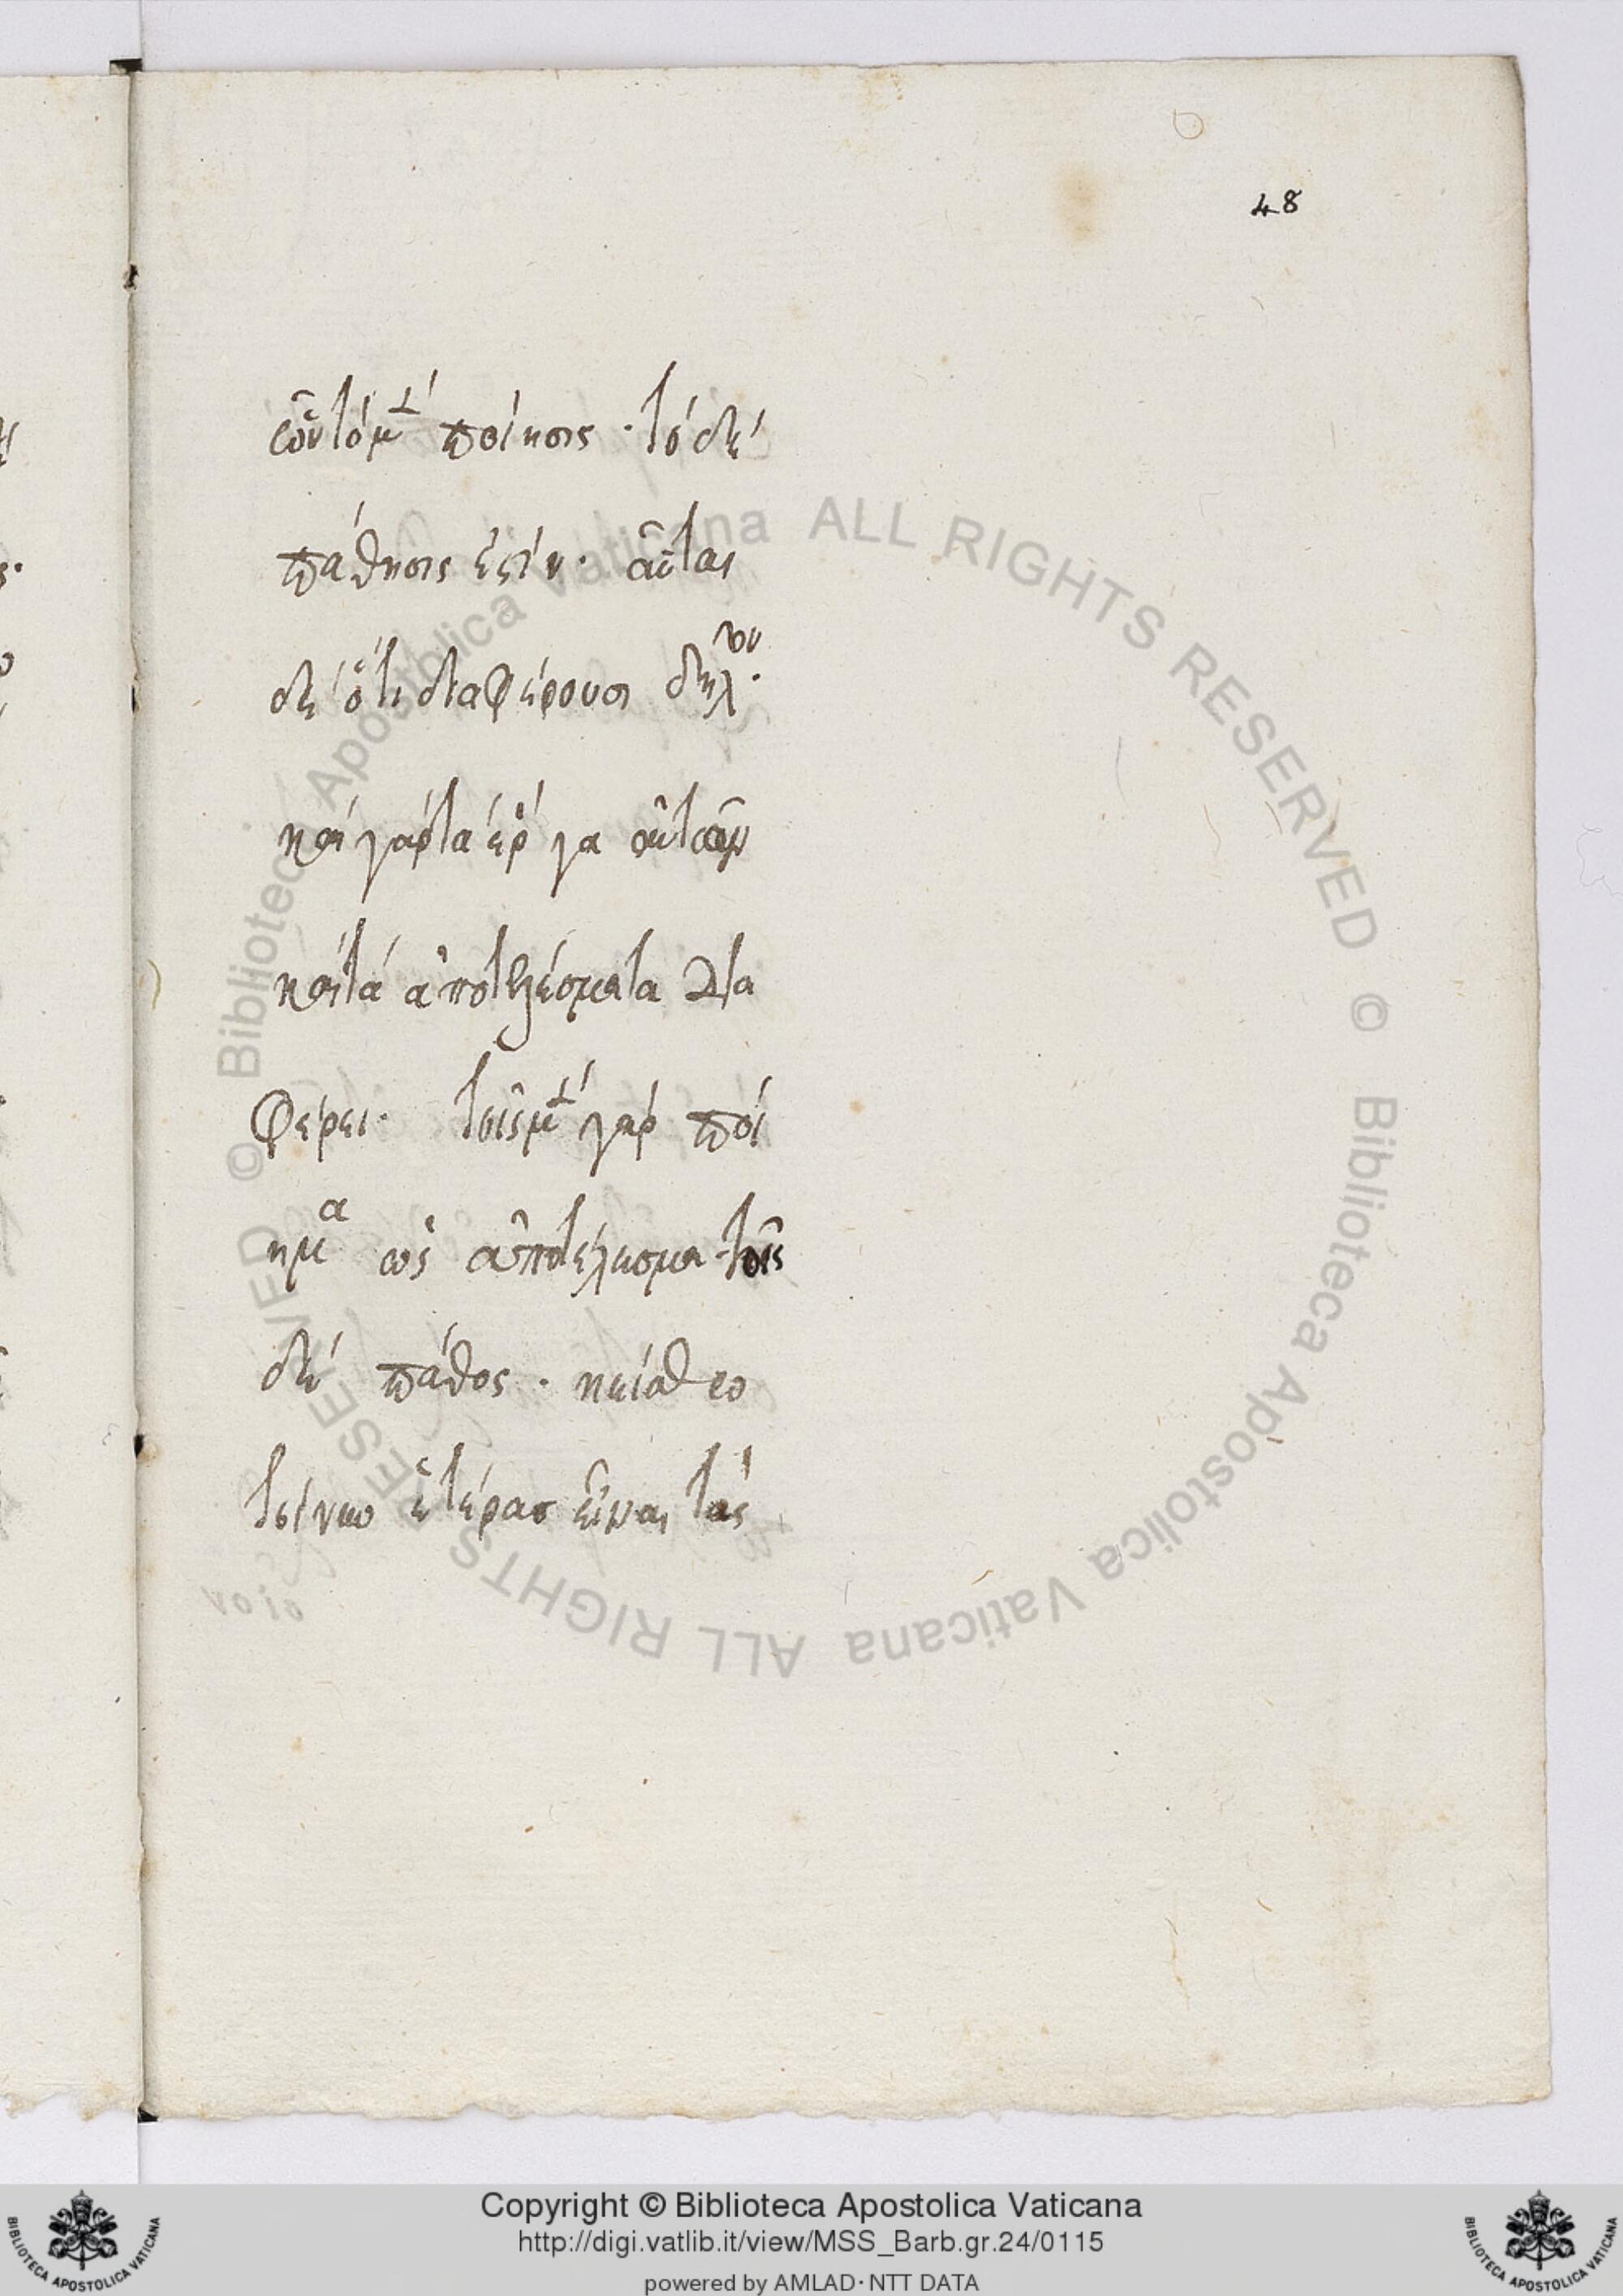 48
ὧν τὸ μὲν ποίησις · τὸ δὲ
πάθησις ἐστίν · αὗται
δὲ ὅτι διαφέρουσι δῆλον ·
καὶ γὰρ τὰ ἔργα αὐτῶν
καὶ τὰ ἀποτελέσματα δια
φέρει · τῆς μὲν γὰρ ποί
ημα ὡς ἀποτέλεσμα τῆς
δὲ πάθος ·
ἑτέρας εἶναι τὰς
© Biblioteca Apostolica Vaticana ALL RIGHTS RESERVED © Biblioteca Apostolica Vaticana ALL RIGHTS RESERVED
Copyright © Biblioteca Apostolica Vaticana
http://digi.vatlib.it/view/MSS_Barb.gr.24/0115
powered by AMLAD·NTT DATA
BIBLIOTECA APOSTOLICA VATICANA
BIBLIOTECA APOSTOLICA VATICANA